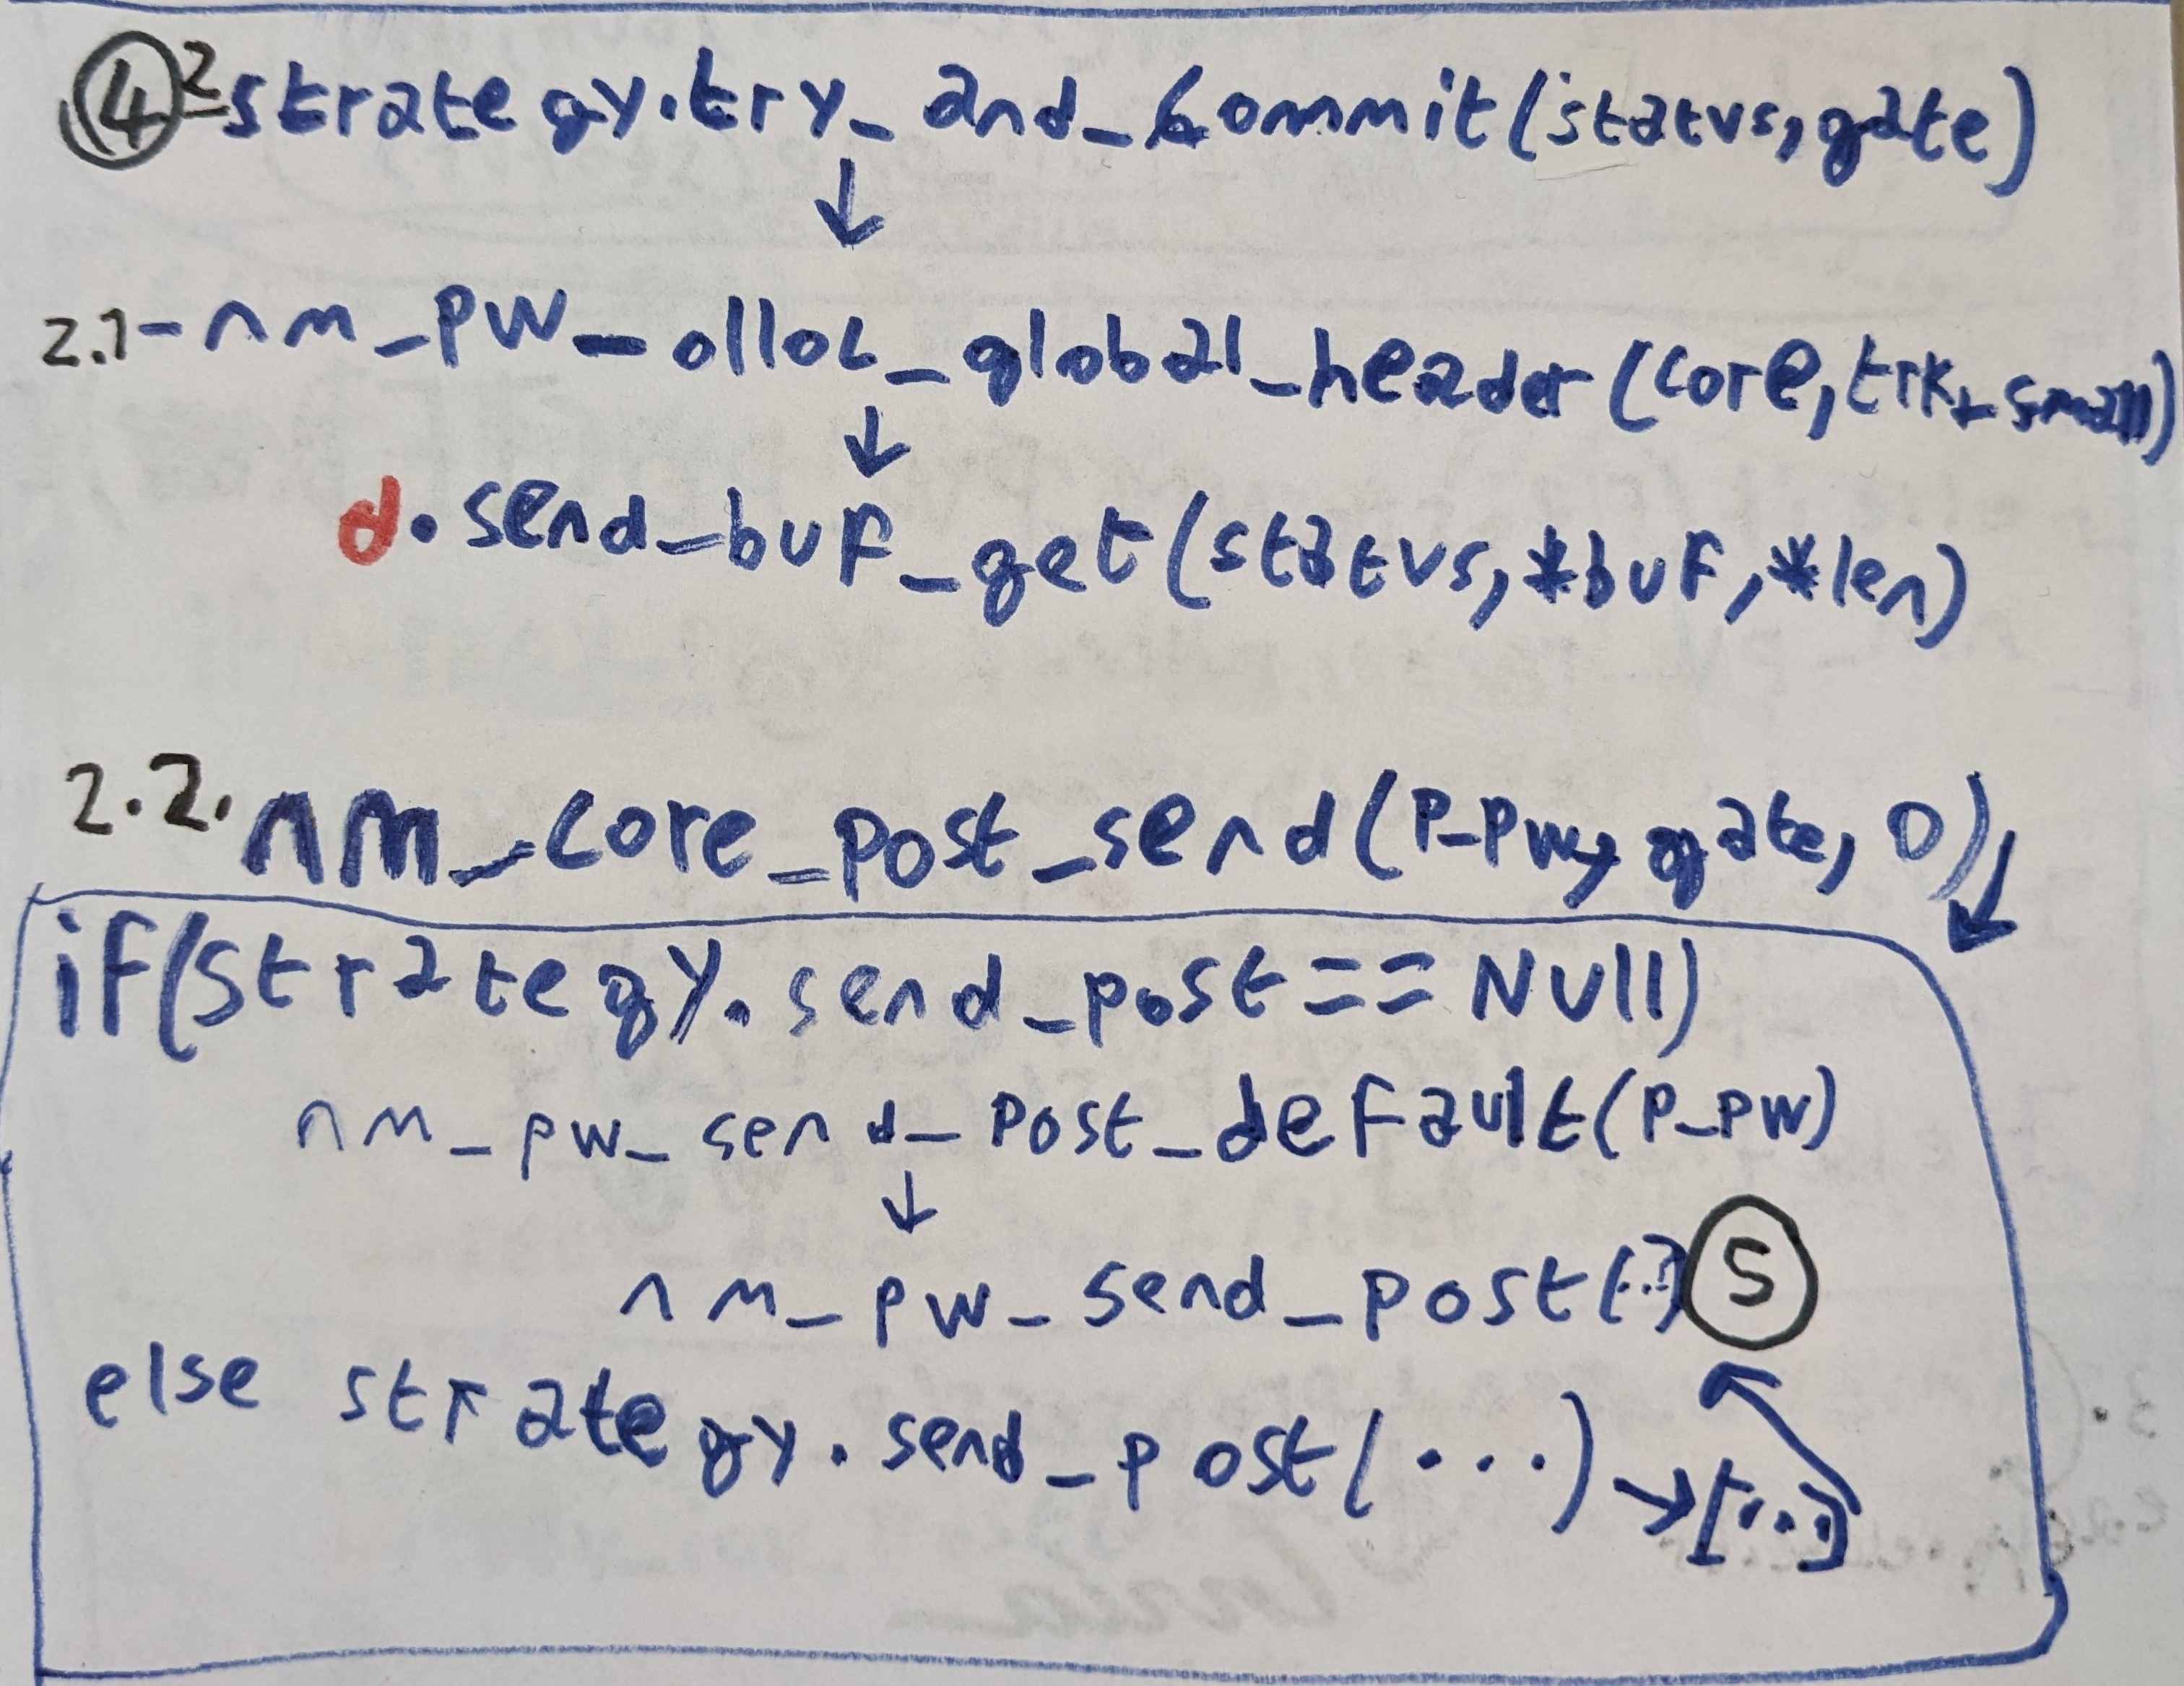 ④ 2-strategy.try_and_commit(status,gate)
↓
2.1-nm_pw_alloc_global_header(core,trk_small)
↓
d.send_buf_get(status,*buf,*len)
2.2.nm_core_post_send(p_pw,gate,0)
↓
if(strategy.send_post==Null)
nm_pw_send_post_default(p_pw)
↓
nm_pw_send_post(..) ⑤
else strategy.send_post(...)→[...]